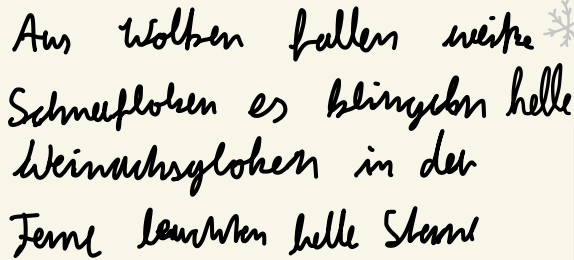 Aus Wolken fallen weiße
Schneefloken es klingeln helle
Weinachsgloken in der
Ferne leuchten helle Sterne